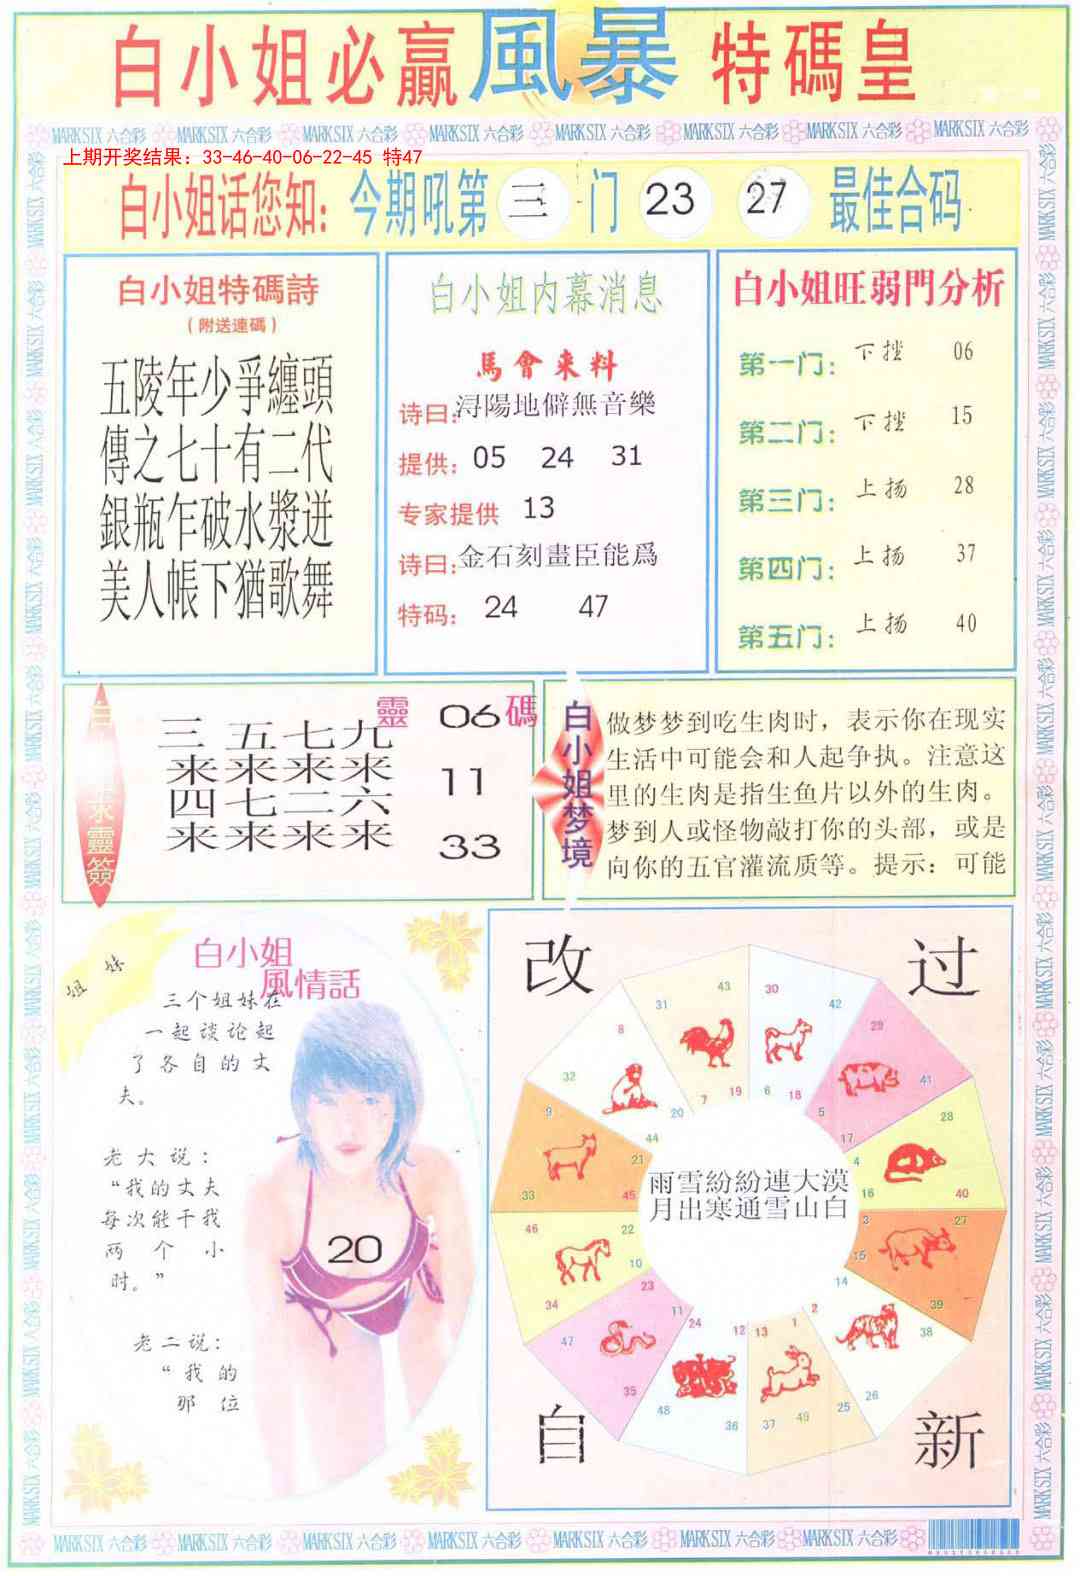 白小姐必贏風暴 特碼皇
MARK SIX 六合彩 MARK SIX 六合彩 MARK SIX 六合彩 MARK SIX 六合彩 MARK SIX 六合彩 MARK SIX 六合彩 MARK SIX 六合彩 MARK SIX 六合彩
上期开奖结果：33-46-40-06-22-45 特47
白小姐话您知：今期吼第 三 门 23 27 最佳合码
白小姐特碼詩
（附送連碼）
五陵年少爭纏頭
傳之七十有二代
銀瓶乍破水漿迸
美人帳下猶歌舞
白小姐内幕消息
馬會来料
诗曰：潯陽地僻無音樂
提供：05 24 31
专家提供 13
诗曰：金石刻畫臣能爲
特码：24 47
白小姐旺弱門分析
第一门：下挫 06
第二门：下挫 15
第三门：上扬 28
第四门：上扬 37
第五门：上扬 40
求靈簽
三五七九
来来来来
四七二六
来来来来
靈碼
06
11
33
白小姐梦境
做梦梦到吃生肉时，表示你在现实
生活中可能会和人起争执。注意这
里的生肉是指生鱼片以外的生肉。
梦到人或怪物敲打你的头部，或是
向你的五官灌流质等。提示：可能
姐妹
白小姐
風情話
三个姐妹在
一起谈论起
了各自的丈
夫。
老大说：
“我的丈夫
每次能干我
两个小
时。”
老二说：
“我的
那位
20
改过
自新
雨雪紛紛連大漠
月出寒通雪山白
7 19 31 43
6 18 30 42
5 17 29 41
4 16 28 40
3 15 27 39
2 14 26 38
1 13 25 37 49
12 24 36 48
11 23 35 47
10 22 34 46
9 21 33 45
8 20 32 44
MARK SIX 六合彩 MARK SIX 六合彩 MARK SIX 六合彩 MARK SIX 六合彩 MARK SIX 六合彩 MARK SIX 六合彩 MARK SIX 六合彩